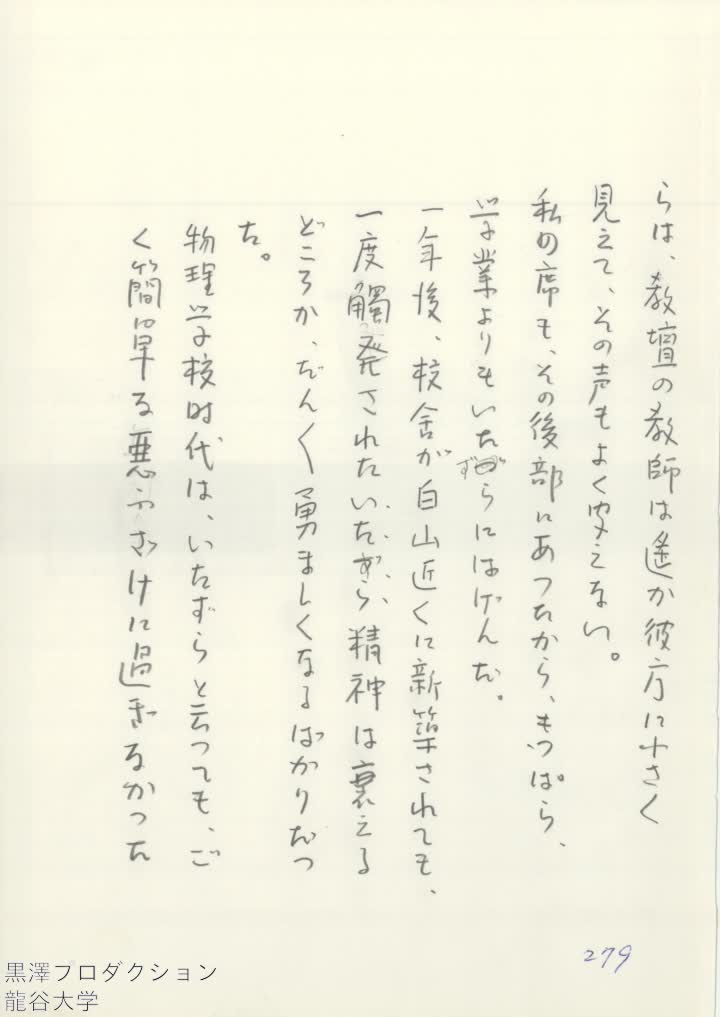 らは、教壇の教師は遙か彼方に小さく
見えて、その声もよく聞えない。
私の席も、その後部にあつたから、もつぱら、
学業よりもいたずらにはげんだ。
一年後、校舎が白山近くに新築されても、
一度觸発されたいたずら精神は衰える
どころか、だん〱勇ましくなるばかりだつ
た。
物理学校時代は、いたずらと云つても、ご
く簡単な悪ふざけに過ぎなかつた
279
黒澤プロダクション
龍谷大学